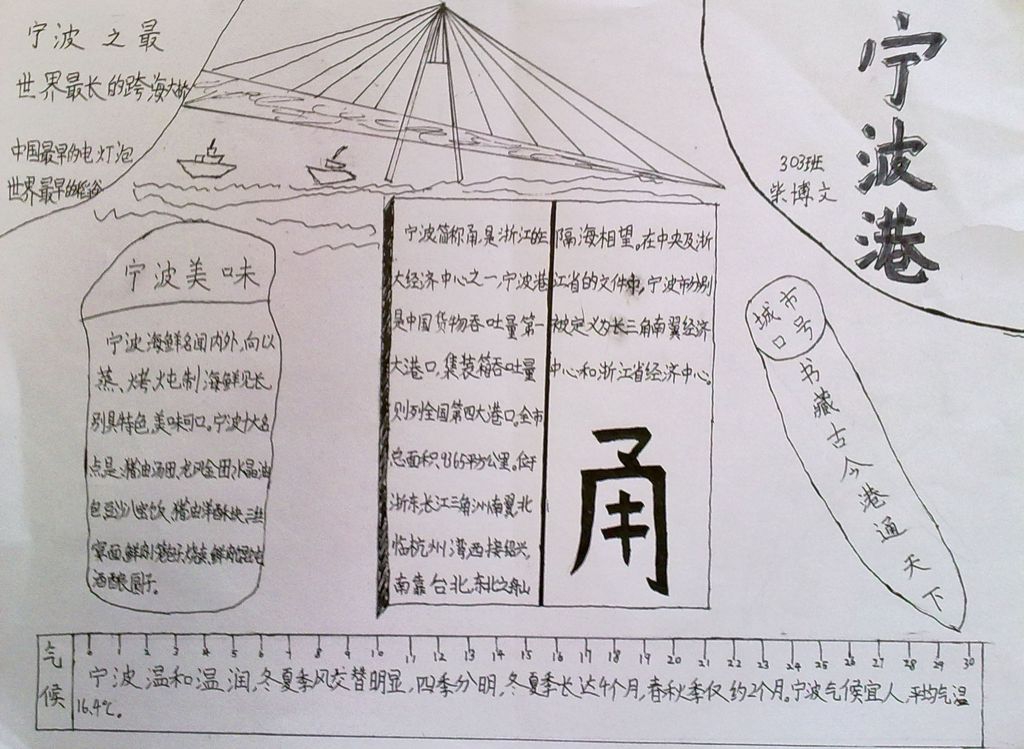 宁波之最
世界最长的跨海大桥
中国最早的电灯泡
世界最早的稻谷
宁波港
303班
柴博文
宁波美味
宁波海鲜名闻内外,向以
蒸、烤、炖制海鲜见长,
别具特色,美味可口。宁波十大名
点是:猪油汤团、龙凤金团、水晶油
包、豆沙八
猪油洋酥块、三
鲜宴面、鲜肉
烧卖、鲜肉馄饨
酒酿圆子。
宁波简称甬,是浙江的三
大经济中心之一,宁波港
是中国货物吞吐量第一
大港口,集装箱吞吐量
则列全国第四大港口。全市
总面积9365平方公里。位于
浙东长江三角洲南翼,北
临杭州湾,西接绍兴,
南靠台北,东北之舟山
隔海相望。在中央及浙
江省的文件中,宁波市分别
被定义为长三角南翼经济
中心和浙江省经济中心。
甬
城市
口号
书藏古今港通天下
气候
0 1 2 3 4 5 6 7 8 9 10 11 12 13 14 15 16 17 18 19 20 21 22 23 24 25 26 27 28 29 30
宁波温和温润,冬夏季风交替明显,四季分明,冬夏季长达4个月,春秋季仅约2个月。宁波气候宜人,平均气温
16.4℃。